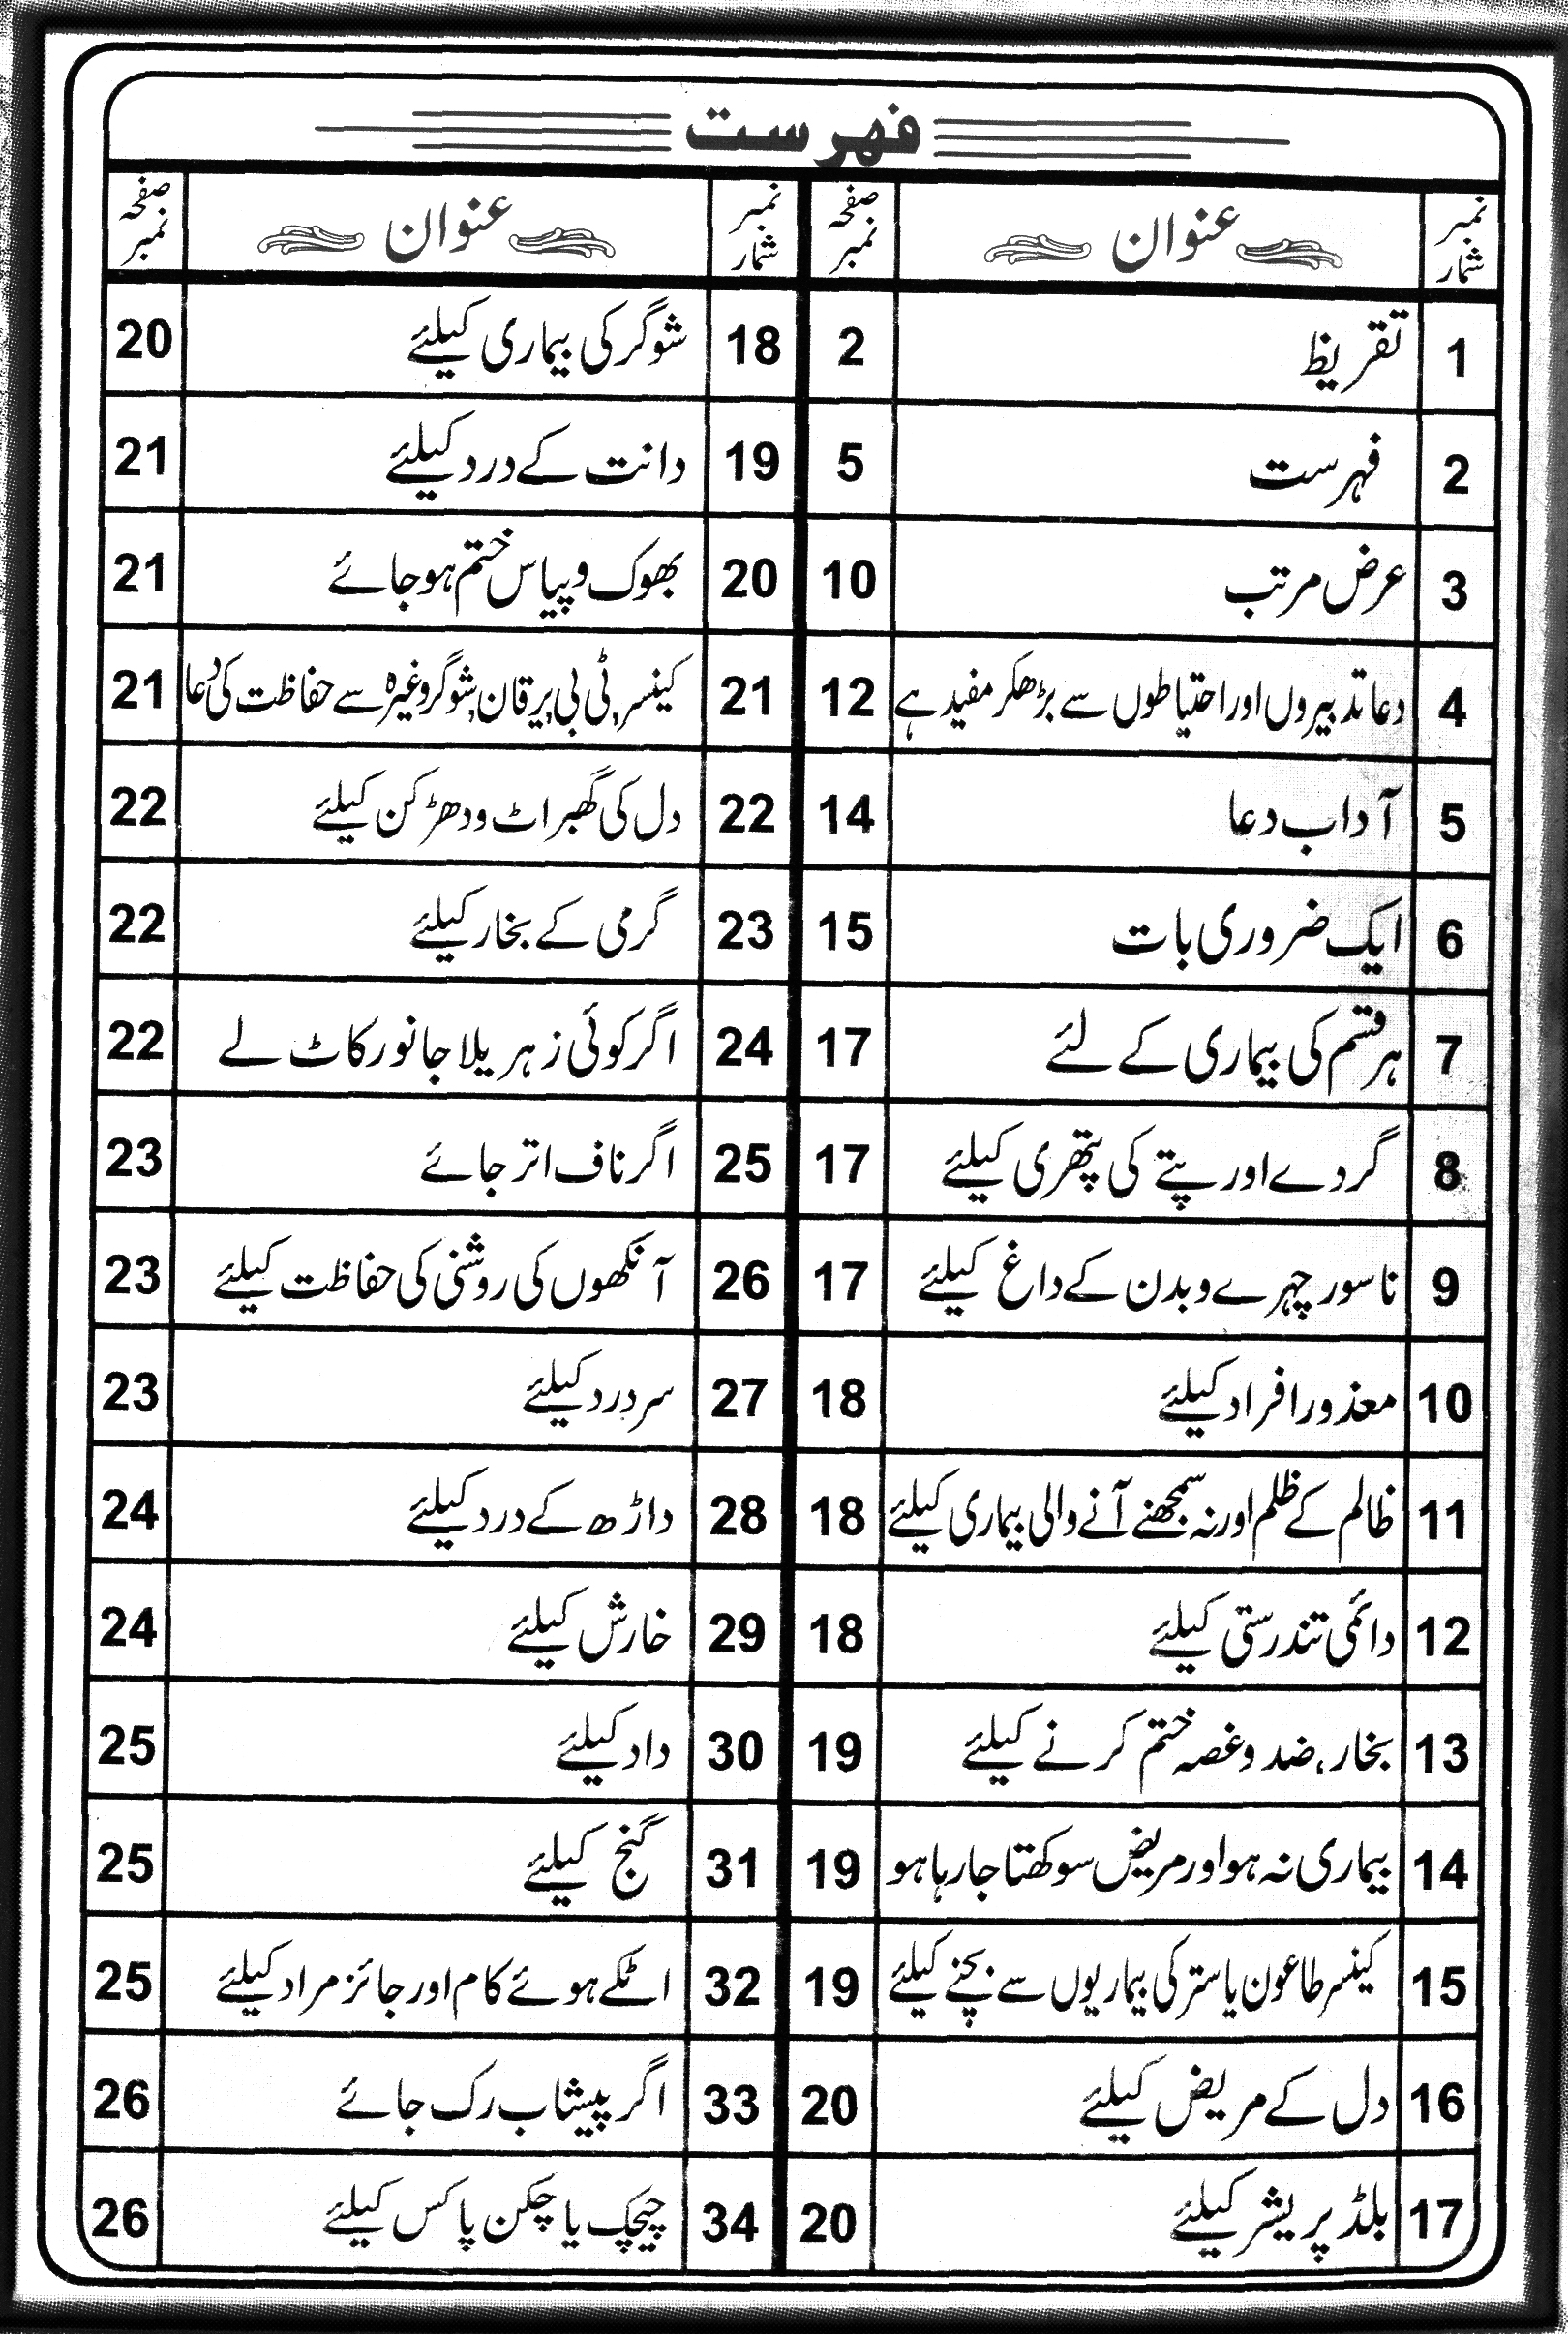 فہرست
نمبر شمار عنوان صفحہ نمبر نمبر شمار عنوان صفحہ نمبر
1 تقریظ 2 18 شوگر کی بیماری کیلئے 20
2 فہرست 5 19 دانت کے درد کیلئے 21
3 عرض مرتب 10 20 بھوک و پیاس ختم ہو جائے 21
4 دعا تدبیروں اور احتیاطوں سے بڑھکر مفید ہے 12 21 کینسر، ٹی بی، یرقان، شوگر وغیرہ سے حفاظت کی دعا 21
5 آداب دعا 14 22 دل کی گھبراٹ و دھڑکن کیلئے 22
6 ایک ضروری بات 15 23 گرمی کے بخار کیلئے 22
7 ہر قسم کی بیماری کے لئے 17 24 اگر کوئی زہریلا جانور کاٹ لے 22
8 گردے اور پتے کی پتھری کیلئے 17 25 اگر ناف اتر جائے 23
9 ناسور چہرے و بدن کے داغ کیلئے 17 26 آنکھوں کی روشنی کی حفاظت کیلئے 23
10 معذور افراد کیلئے 18 27 سر درد کیلئے 23
11 ظالم کے ظلم اور نہ سمجھنے آنے والی بیماری کیلئے 18 28 داڑھ کے درد کیلئے 24
12 دائمی تندرستی کیلئے 18 29 خارش کیلئے 24
13 بخار، ضد و غصہ ختم کرنے کیلئے 19 30 داد کیلئے 25
14 بیماری نہ ہو اور مریض سوکھتا جا رہا ہو 19 31 گنج کیلئے 25
15 کینسر طاعون یا ستر کی بیماریوں سے بچنے کیلئے 19 32 اٹکے ہوئے کام اور جائز مراد کیلئے 25
16 دل کے مریض کیلئے 20 33 اگر پیشاب رک جائے 26
17 بلڈ پریشر کیلئے 20 34 چیچک یا چکن پاکس کیلئے 26